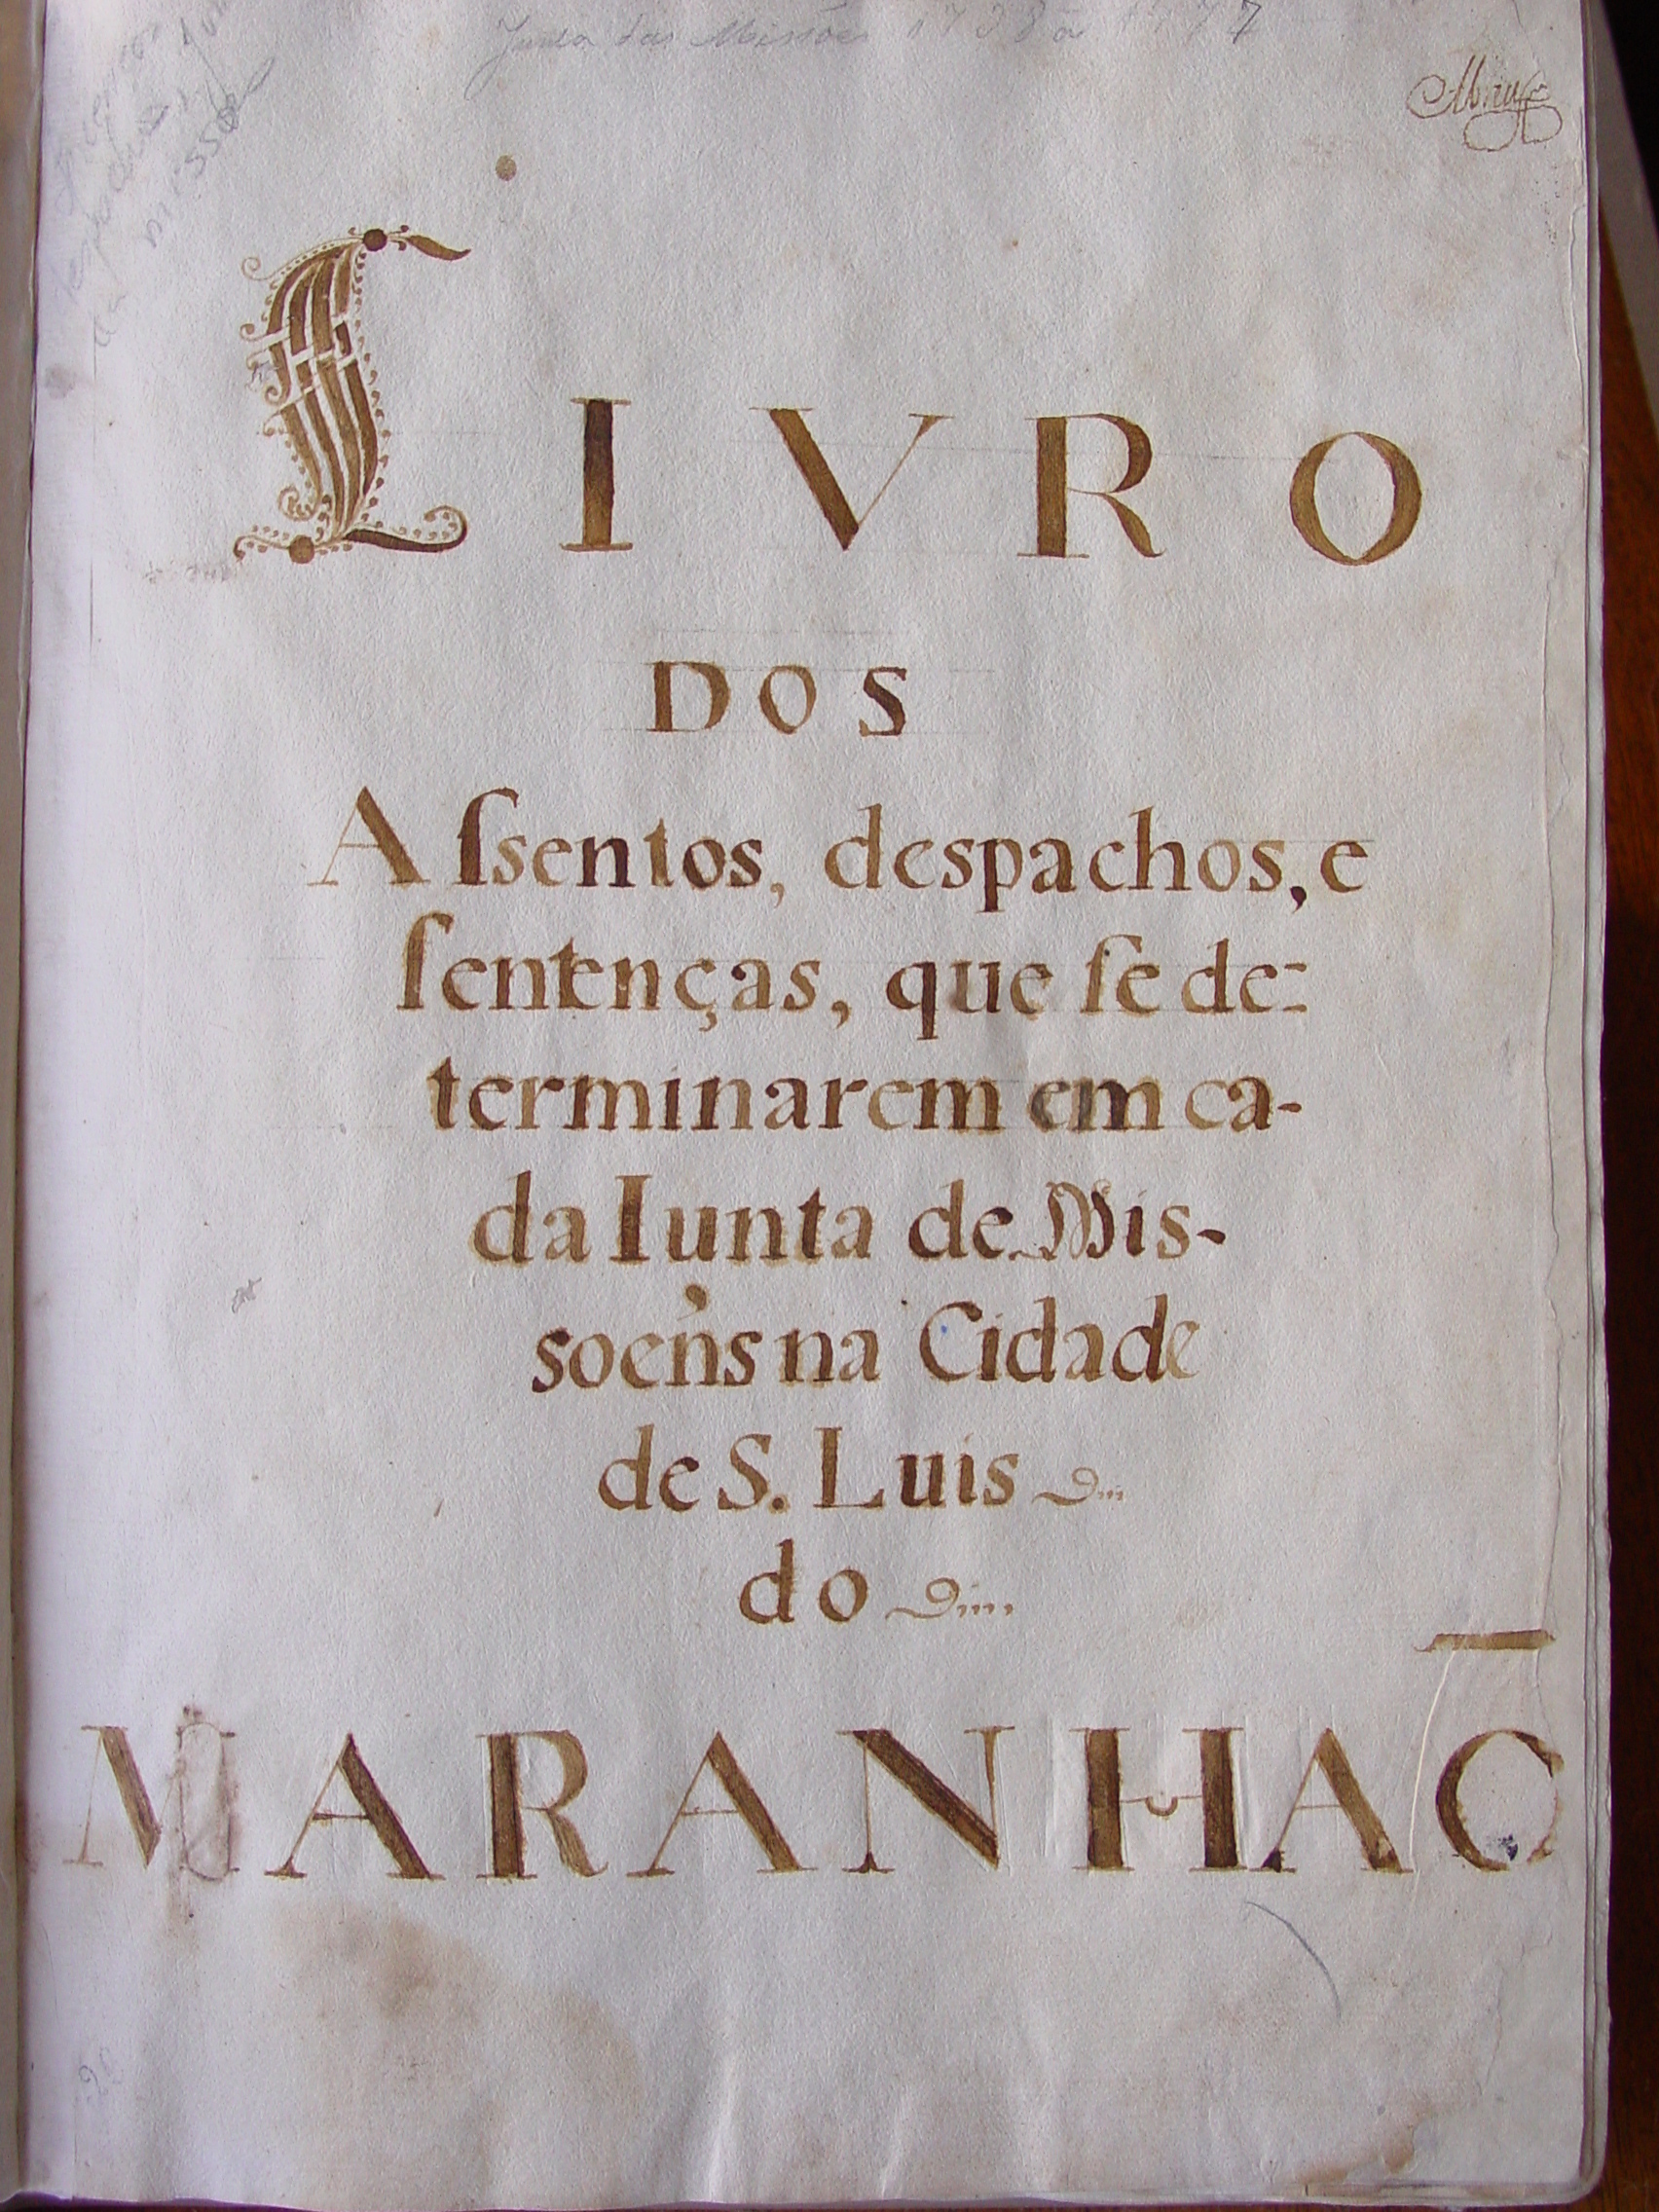 Junta das Missões 1738 a 1777
LIVRO
DOS
Aſsentos, despachos, e
ſentenças, que ſe de-
terminarem em ca-
da Iunta de Mis-
soeñs na Cidade
de S. Luis
do
MARANHAÕ